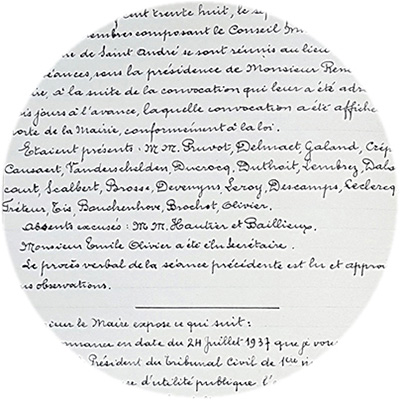 cent trente huit, le sep
membres composant le Conseil M
de Saint André se sont réunis au lieu
séances, sous la présidence de Monsieur Rem
ire, à la suite de la convocation qui leur a été adr
is jours à l'avance, laquelle convocation a été affiche
orte de la Mairie, conformément à la loi.
Etaient présents : M M. Pruvot, Delmaet, Galand, Crép
Caussaert, Vanderschelden, Ducrocq, Duthoit, Lembrez, Dals
court, Scalbert, Brosse, Devemyns, Leroy, Descamps, Leclercq
Tréteur, Tis, Bauchenhove, Brochot, Olivier.
Absents excusés : M M. Hautier et Baillieux.
Monsieur Emile Olivier a été élu Secrétaire.
Le procès verbal de la séance précédente est lu et appro
s observations.
ieur le Maire expose ce qui suit :
onnance en date du 24 Juillet 1937 que je vous
Président du Tribunal Civil de 1ère
e d'utilité publique l'